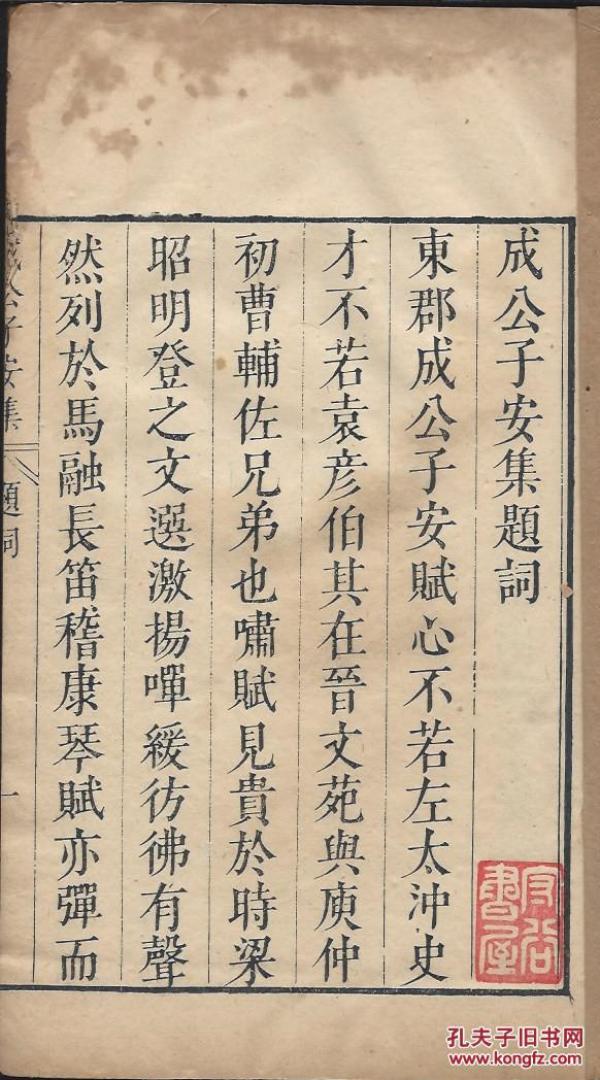 成公子安集題詞
東郡成公子安賦心不若左太沖史
才不若袁彥伯其在晉文苑與庾仲
初曹輔佐兄弟也嘯賦見貴於時梁
昭明登之文選激揚嘽緩彷彿有聲
然列於馬融長笛嵇康琴賦亦彈而
成公子安集
題詞
一
孔夫子旧书网
www.kongfz.com